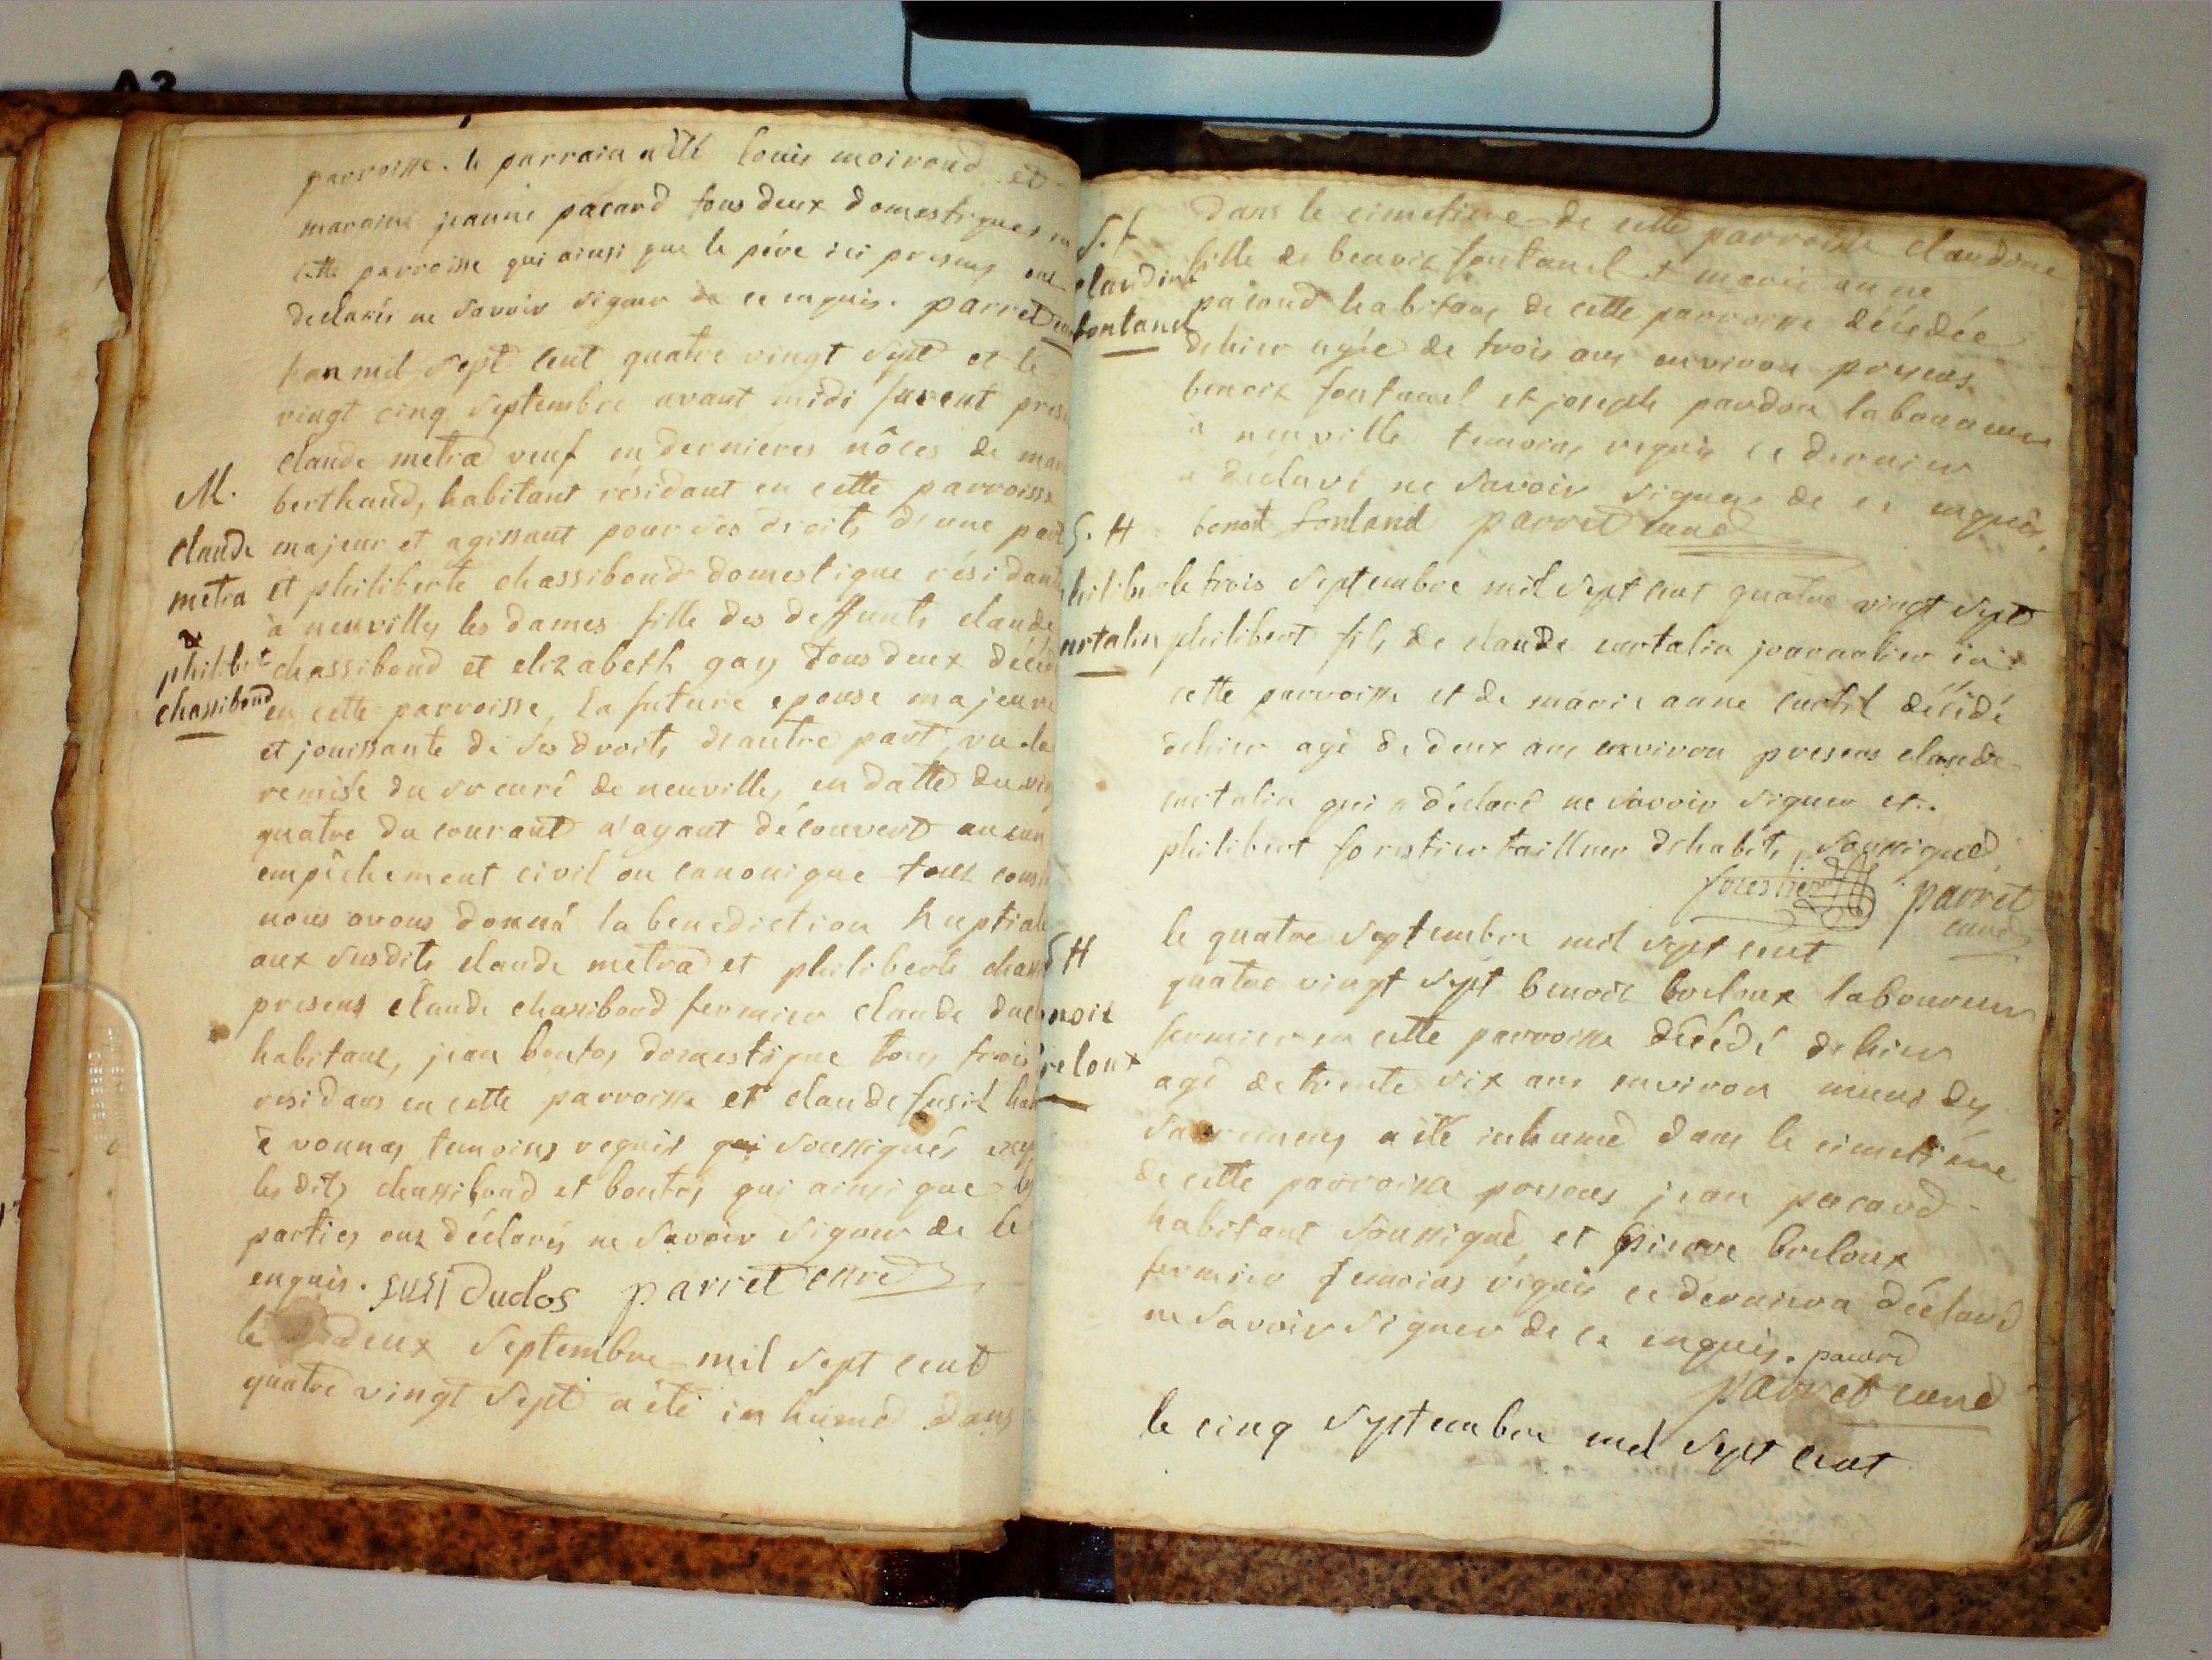 A3
parroisse. le parrain a été louis moiroud et
maraine jeanne pacard tous deux domestiques en
cette parroisse qui ainsi que le pére ici presens ont
declarés ne savoir signer de ce enquis. parret curé
l'an mil sept cent quatre vingt sept et le
vingt cinq septembre avant midi furent
claude metra veuf en dernieres nôces de
berthaud, habitant résidant en cette parroisse
majeur et agissant pour ses droits d'une part
et philiberte chassiboud domestique résidante
à neuville les dames fille des deffunts claude
chassiboud et elizabeth gay tous deux
en cette parroisse, la future epouse majeure
et jouissante de ses droits d'autre part, vu la
remise du sr curé de neuville, en datte du
quatre du courant n'ayant découvert aucun
empêchement civil ou canonique
nous avons donné la benediction nuptiale
aux susdits claude metra et philiberte
presens claude chassiboud fermier claude
habitant, jean boutos domestique tous trois
residans en cette parroisse et claude fusil
à vonnas temoins requis qui soussignés
les dits chassiboud et boutos qui ainsi que les
parties ont déclarés ne savoir signer de ce
enquis. fusi dudos parret curé
le deux septembre mil sept cent
quatre vingt sept a été inhumé dans
M.
claude
metra
&
philibte
chassiboud
dans le cimetiere de cette parroisse claudine
fille de benoit fontanel et marie anne
pacoud habitans de cette parroisse décédée
dehier agée de trois ans environ presens
benoit fontanel et joseph pardon laboureur
à neuville temoins requis ce dernier
a déclaré ne savoir signer de ce enquis.
benoit fonland parret curé
le trois septembre mil sept cent quatre vingt sept
philibert fils de claude curtalin journalier en
cette parroisse et de marie anne curtil décédé
dehier agé de deux ans environ presens claude
curtalin qui a déclaré ne savoir signer et
philibert forestier tailleur d'habits soussigné
forestier parret
curé
le quatre septembre mil sept cent
quatre vingt sept benoit breloux laboureur
fermier en cette parroisse décédé dehier
agé de trente six ans environ muni des
sacremens a été inhumé dans le cimetiére
de cette parroisse presens jean pacard
habitant soussigné et pierre breloux
fermier temoins réquis ce dernier a déclaré
ne savoir signer de ce enquis. pacard
parret curé
le cinq septembre mil sept cent
S. f
claudine
fontanel
S. H
philibe
urtalin
S H
noit
reloux